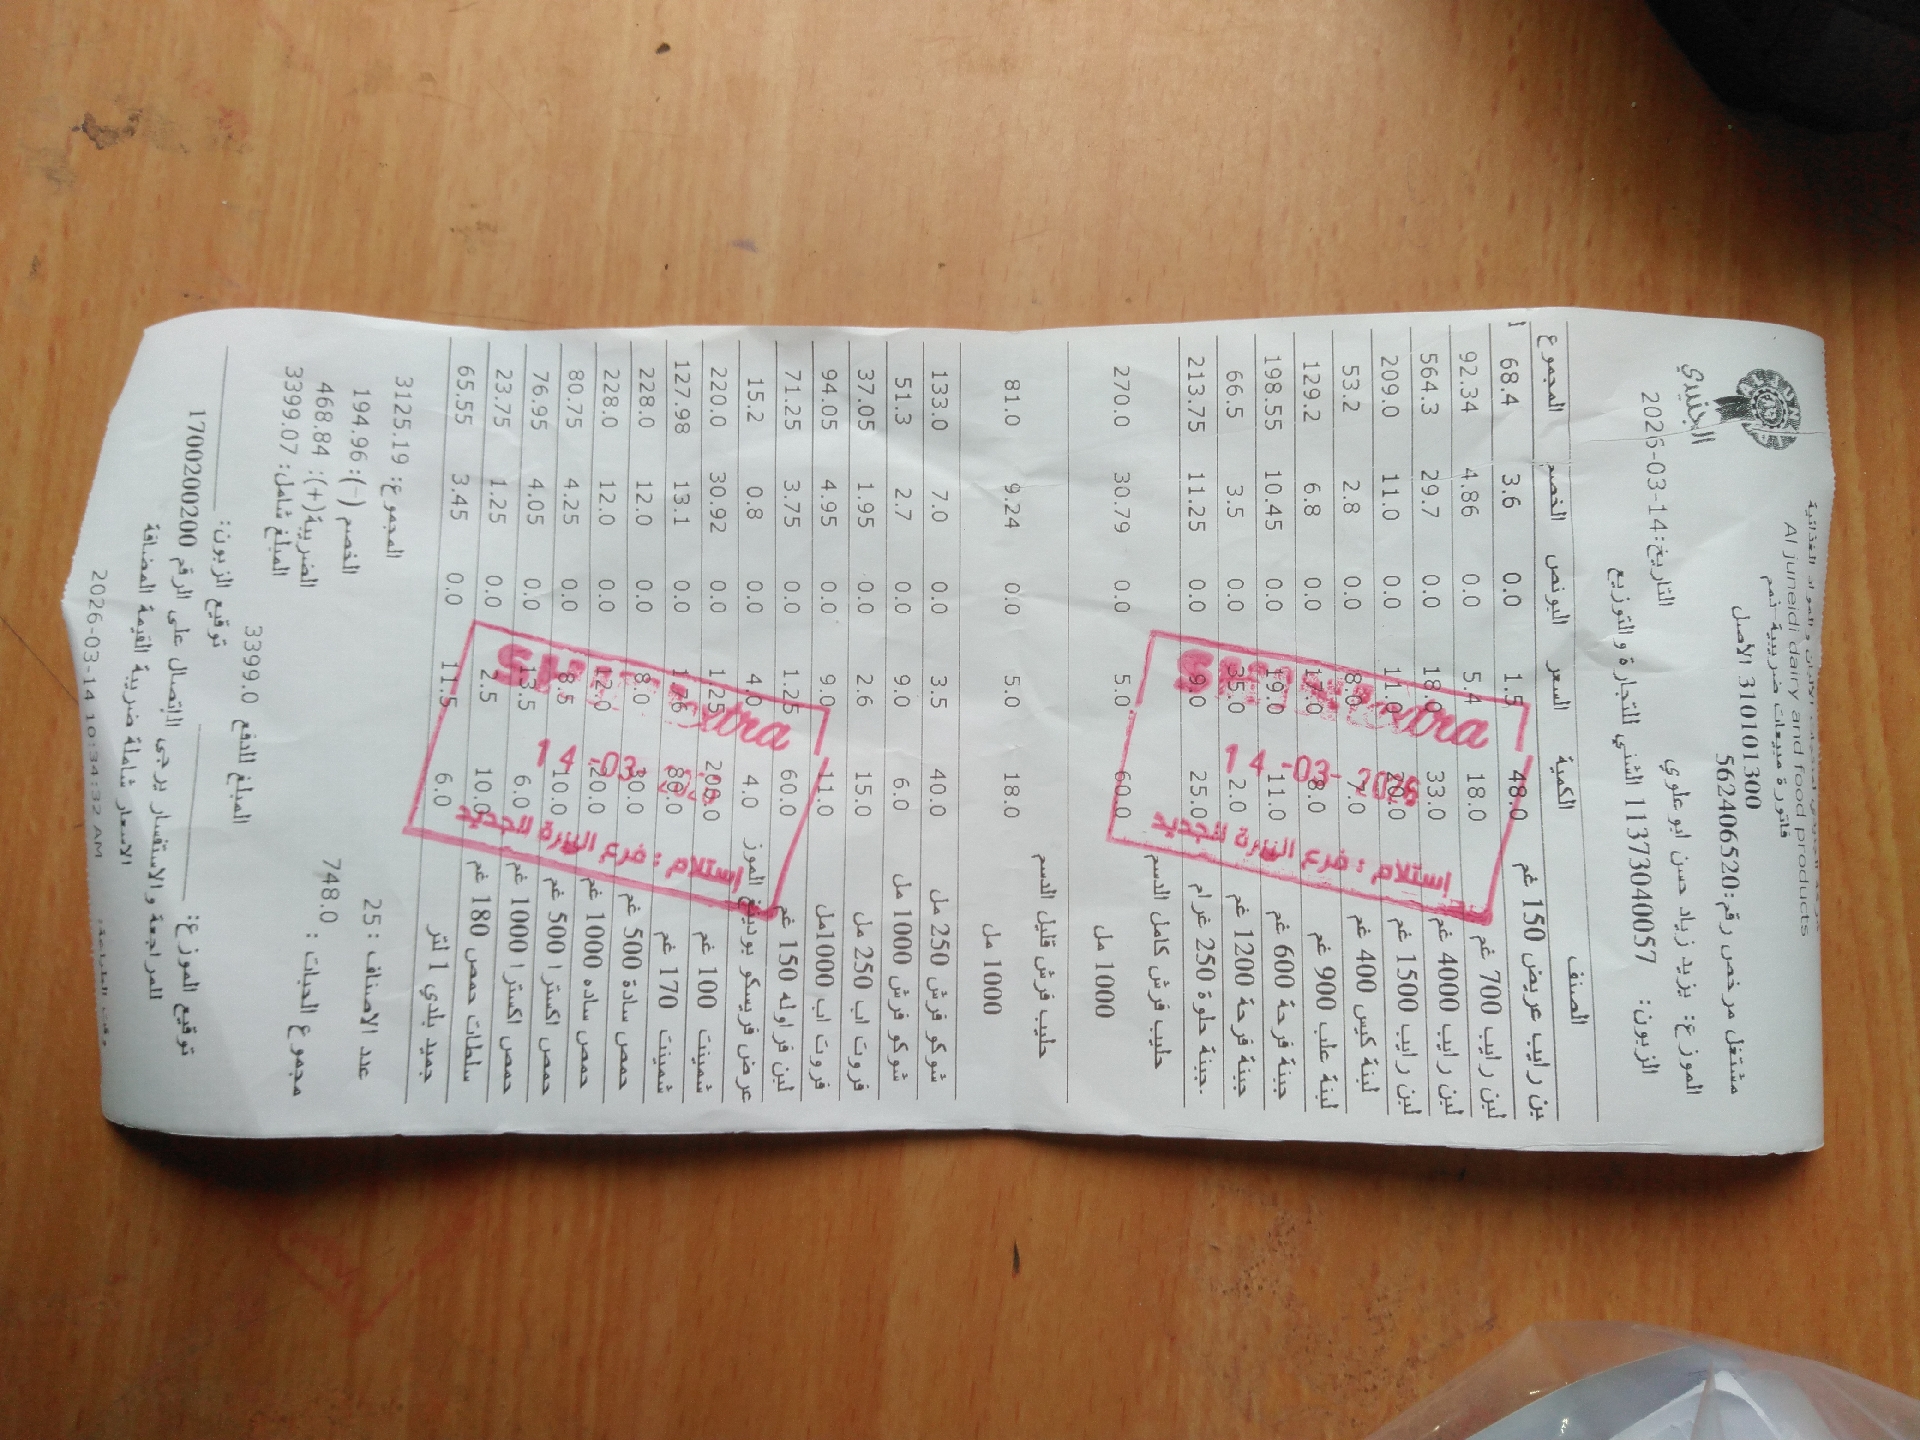 الجنيدي
والمواد الغذائية
Al juneidi dairy and food products
فاتورة مبيعات ضريبية نمم
مشتغل مرخص رقم:562406520
الأصل 310101300
الموزع: يزيد زياد حسن ابو علوي
التاريخ:2026-03-14
الزبون: 11373040057 الشني للتجارة والتوزيع
الصنف الكمية السعر البونص الخصم المجموع
بن رايب عريض 150 غم 48.0 1.5 0.0 3.6 68.4
لبن رايب 700 غم 18.0 5.4 0.0 4.86 92.34
لبن رايب 4000 غم 33.0 18.0 0.0 29.7 564.3
لبن رايب 1500 غم 20.0 11.0 0.0 11.0 209.0
لبنة كيس 400 غم 7.0 8.0 0.0 2.8 53.2
لبنة علب 900 غم 8.0 17.0 0.0 6.8 129.2
جبنة فرحة 600 غم 11.0 19.0 0.0 10.45 198.55
جبنة فرحة 1200 غم 2.0 35.0 0.0 3.5 66.5
جبنة حلوة 250 غرام 25.0 9.0 0.0 11.25 213.75
حليب فرش كامل الدسم 1000 مل 60.0 5.0 0.0 30.79 270.0
حليب فرش قليل الدسم 1000 مل 18.0 5.0 0.0 9.24 81.0
شوكو فرش 250 مل 40.0 3.5 0.0 7.0 133.0
شوكو فرش 1000 مل 6.0 9.0 0.0 2.7 51.3
فروت اب 250 مل 15.0 2.6 0.0 1.95 37.05
فروت اب 1000مل 11.0 9.0 0.0 4.95 94.05
لبن فراوله 150 غم 60.0 1.25 0.0 3.75 71.25
عرض فريسكو بودينغ الموز 4.0 4.0 0.0 0.8 15.2
شمينت 100 غم 200.0 1.25 0.0 30.92 220.0
شمينت 170 غم 80.0 1.76 0.0 13.1 127.98
حمص سادة 500 غم 30.0 8.0 0.0 12.0 228.0
حمص ساده 1000 غم 20.0 12.0 0.0 12.0 228.0
حمص اكسترا 500 غم 10.0 8.5 0.0 4.25 80.75
حمص اكسترا 1000 غم 6.0 13.5 0.0 4.05 76.95
سلطات حمص 180 غم 10.0 2.5 0.0 1.25 23.75
جميد بلدي 1 لتر 6.0 11.5 0.0 3.45 65.55
extra
14-03-2026
إستلام : فرع البيرة الجديد
extra
14-03-2026
إستلام : فرع البيرة الجديد
المجموع: 3125.19
عدد الاصناف : 25
الخصم (-): 194.96
مجموع الحبات : 748.0
الضريبة(+): 468.84
المبلغ شامل: 3399.07
المبلغ للدفع 3399.0
توقيع الموزع: توقيع الزبون:
للمراجعة والاستفسار يرجى الاتصال على الرقم 1700200200
الاسعار شاملة ضريبة القيمة المضافة
وقت الطباعة: 2026-03-14 10:34:32 AM